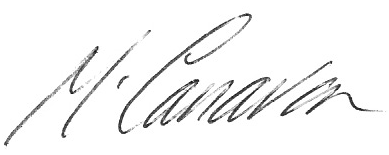 M. Canavan